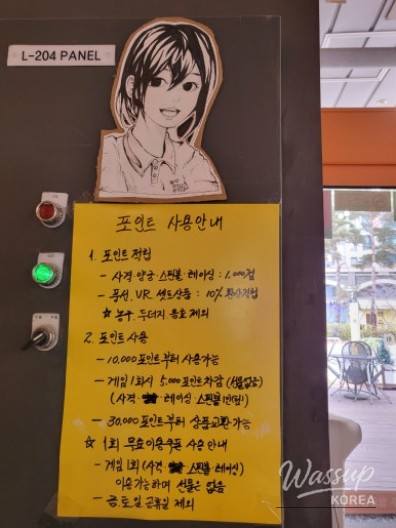 L-204 PANEL
포인트 사용안내
1. 포인트 적립
- 사격·양궁·스핀볼·레이싱 : 1,000점
- 풍선, VR, 셋트상품 : 10% 환산적립
☆ 농구, 두더지, 동호 제외
2. 포인트 사용
- 10,000포인트부터 사용가능
- 게임 1회시 5,000포인트차감 (선물없음)
(사격· 레이싱·스핀볼
- 30,000포인트부터 상품교환가능
☆ 1회 무료이용쿠폰 사용안내
- 게임 1회 (사격· 스핀볼·레이싱)
이용가능하며 선물은 없음
- 금.토.일 공휴일 제외
Wassup
KOREA